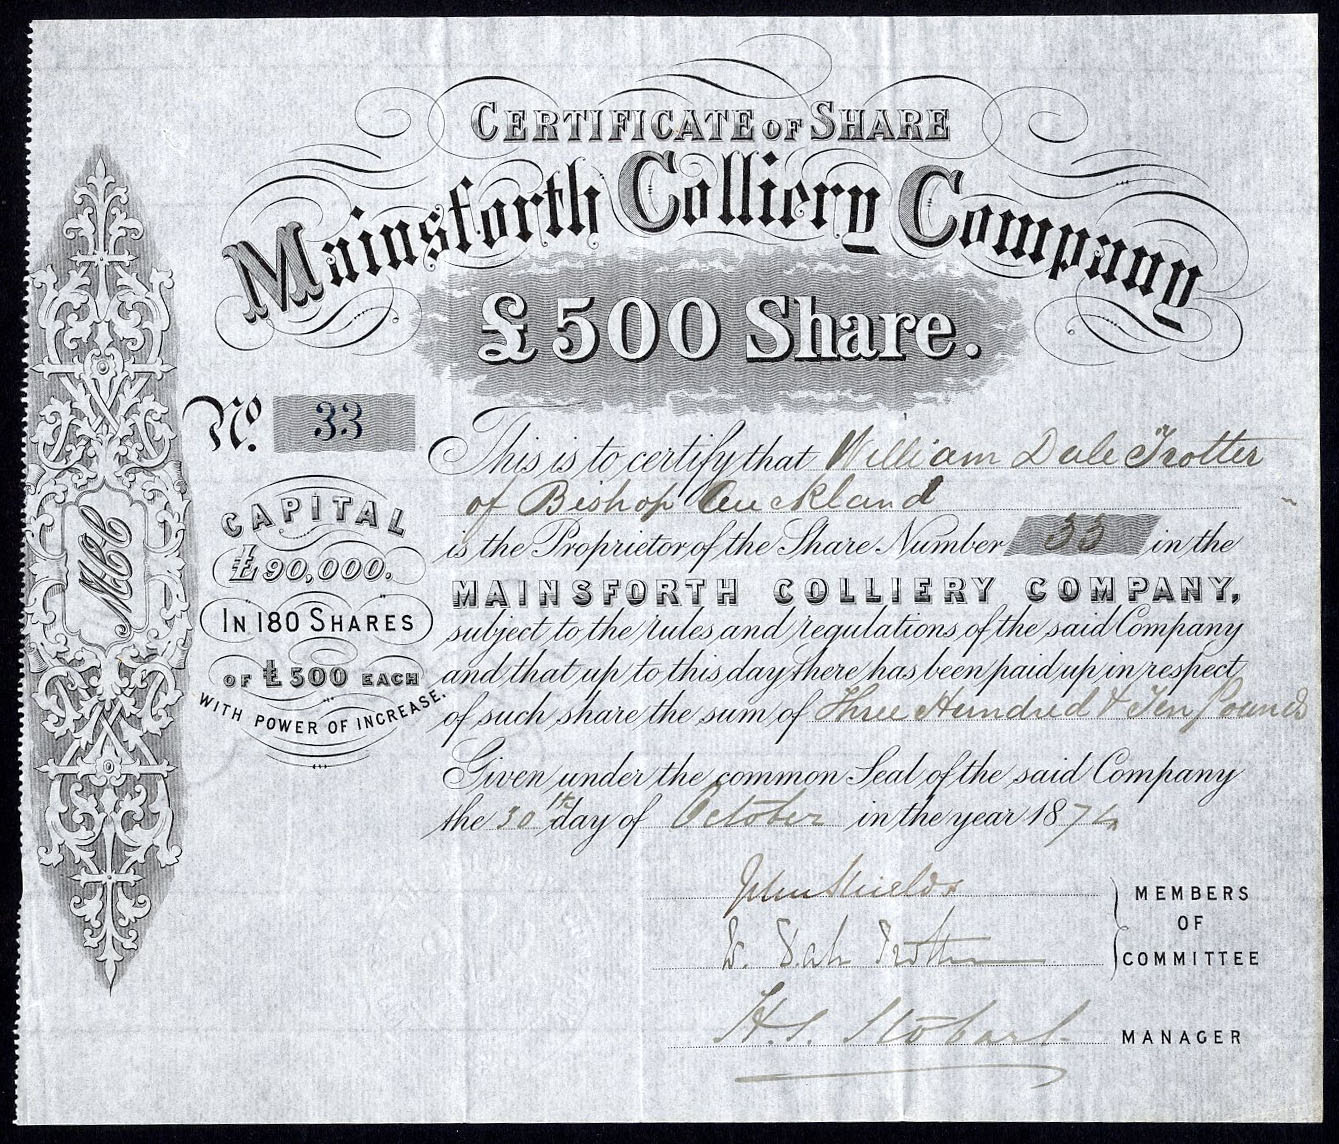 CERTIFICATE OF SHARE
Mainsforth Colliery Company
£500 Share.
No. 33
CAPITAL
£90,000.
IN 180 SHARES
OF £500 EACH
WITH POWER OF INCREASE.
MCC
This is to certify that William Dale Trotter
of Bishop Auckland
is the Proprietor of the Share Number 33 in the
MAINSFORTH COLLIERY COMPANY,
subject to the rules and regulations of the said Company
and that up to this day there has been paid up in respect
of such share the sum of Three Hundred & Ten Pounds
Given under the common Seal of the said Company
the 30th day of October in the year 1874
John Shields
W. Dale Trotter
MEMBERS
OF
COMMITTEE
H. S. Stobart
MANAGER